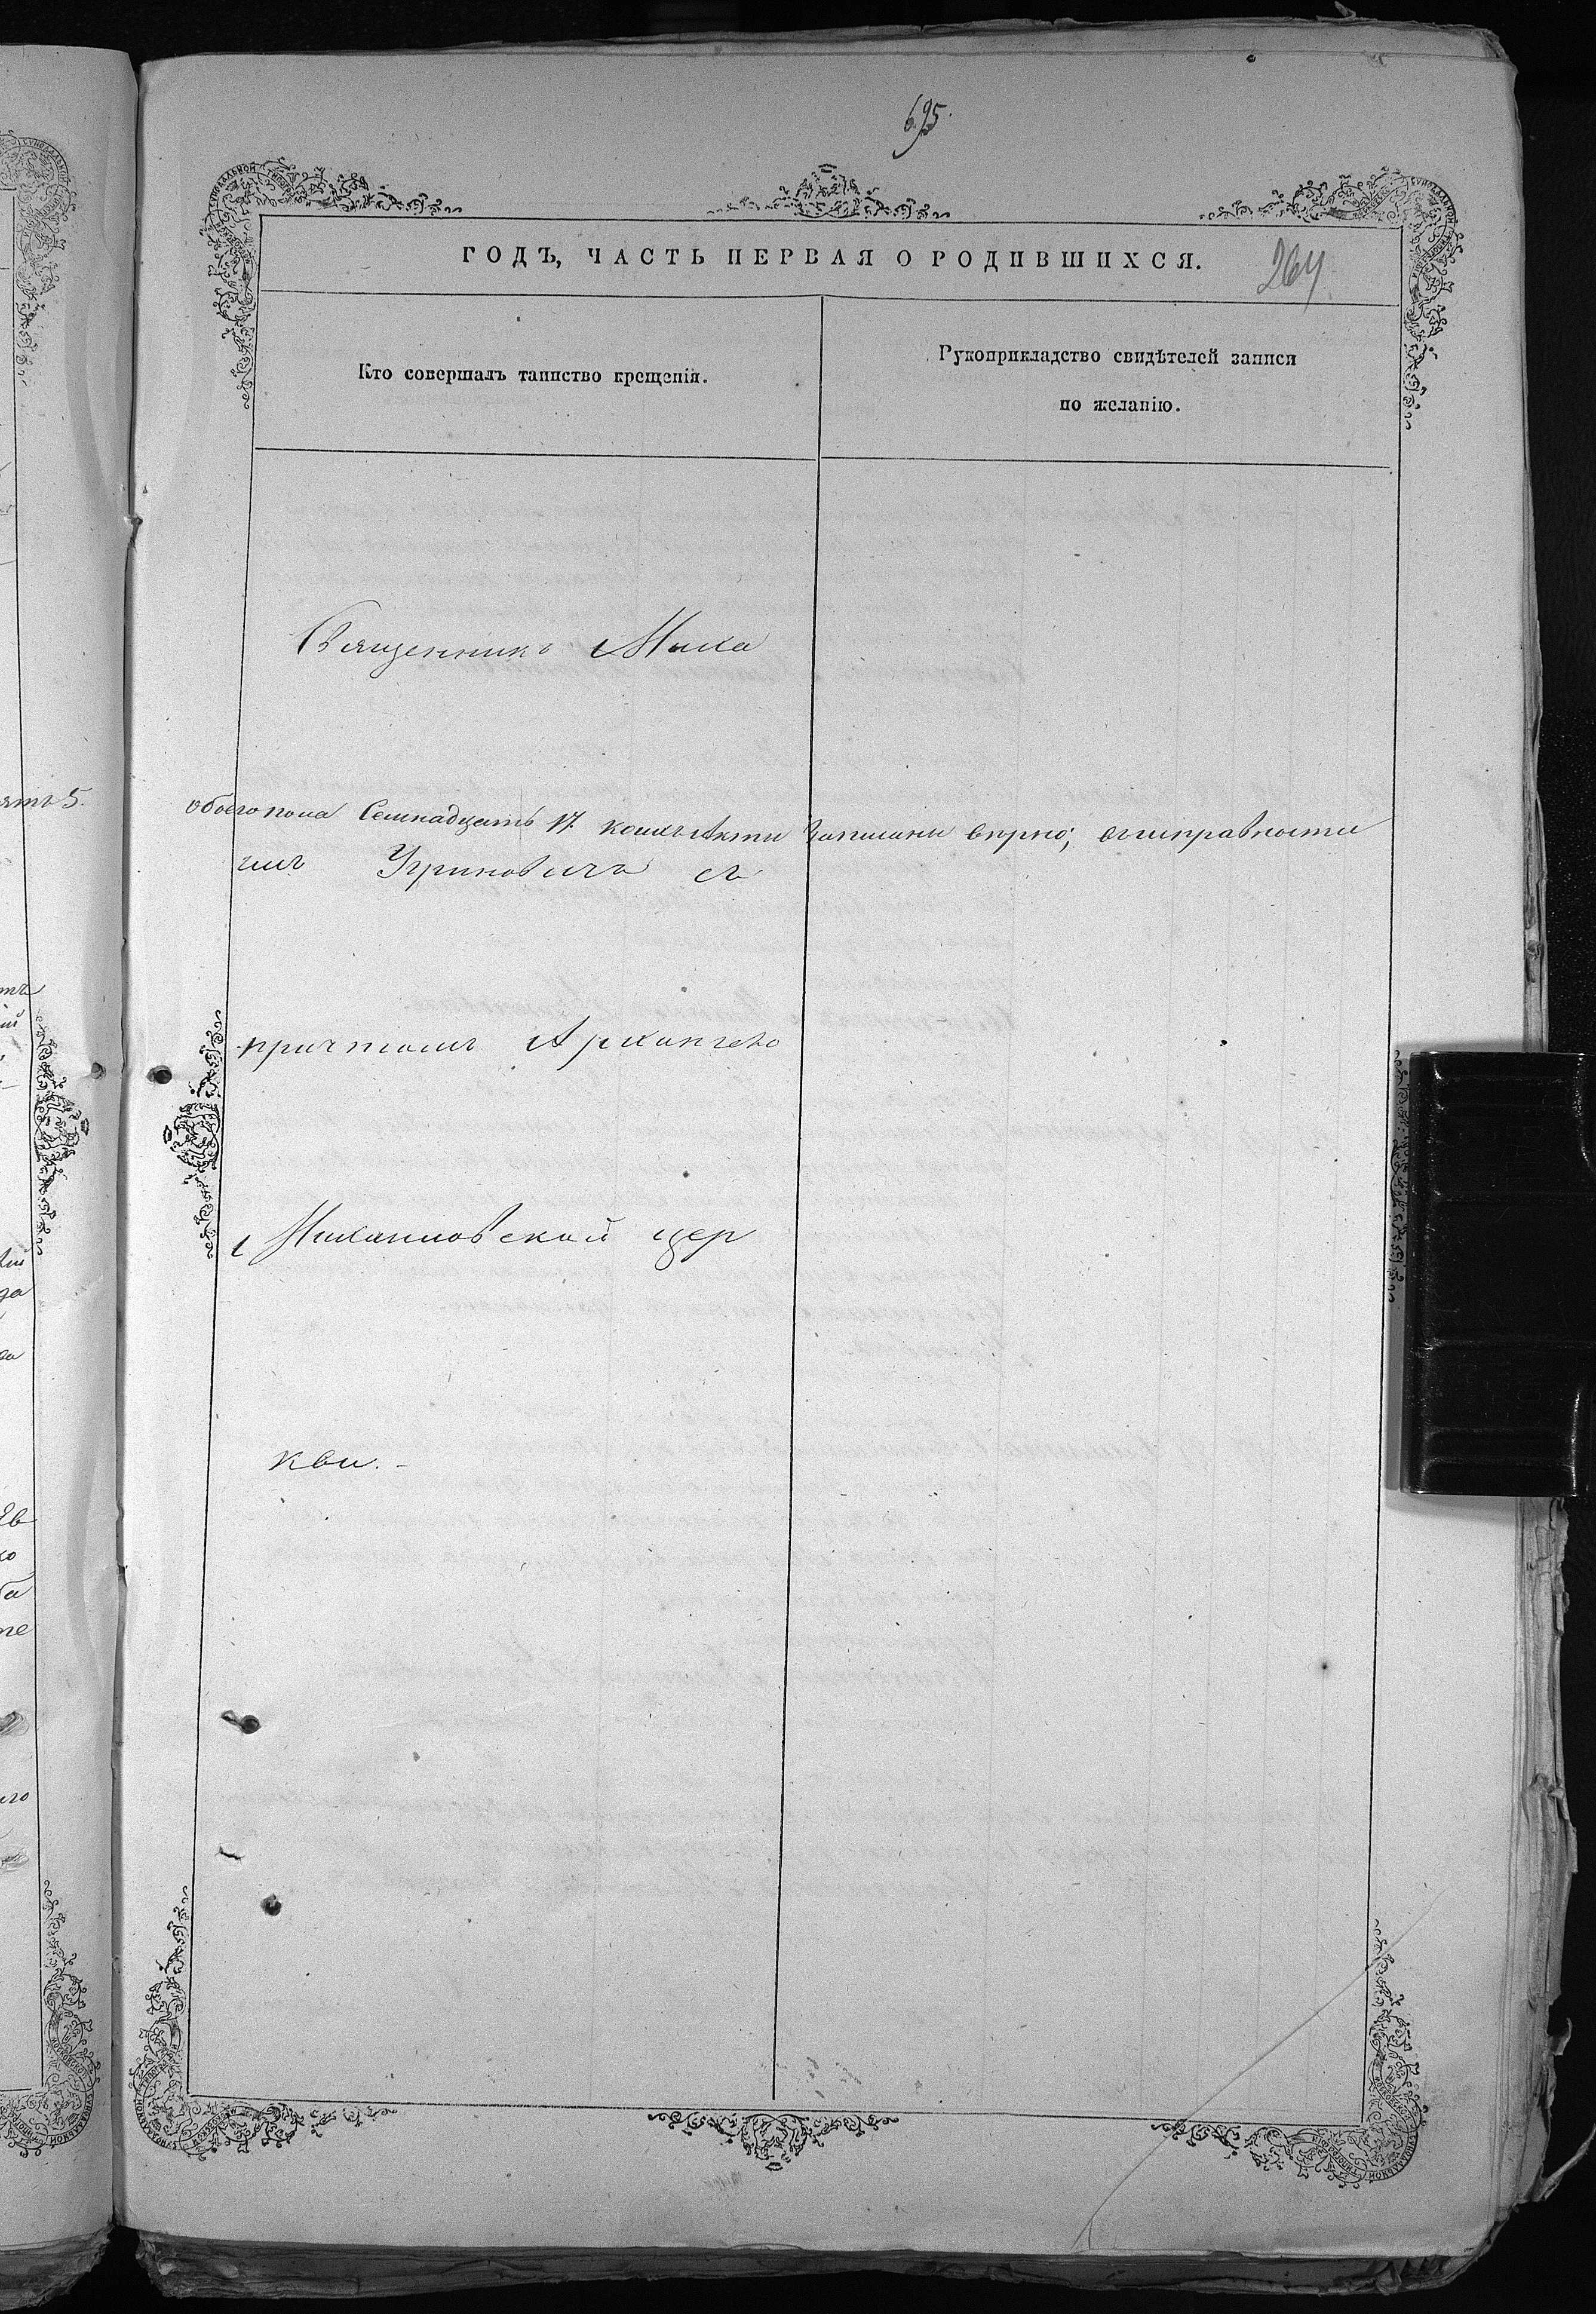 695.
ГОДЪ, ЧАСТЬ ПЕРВАЯ О РОДИВШИХСЯ.
264
Кто совершалъ таинство крещенія.
Рукоприкладство свидѣтелей записи
по желанію.
Священникъ Миха
обоего пола Семнадцать 17. коихъ Акты Записаны вѣрно; въ исправности
илъ Угриновичъ съ
причтомъ Архангело
Михаиловской цер
кви. -